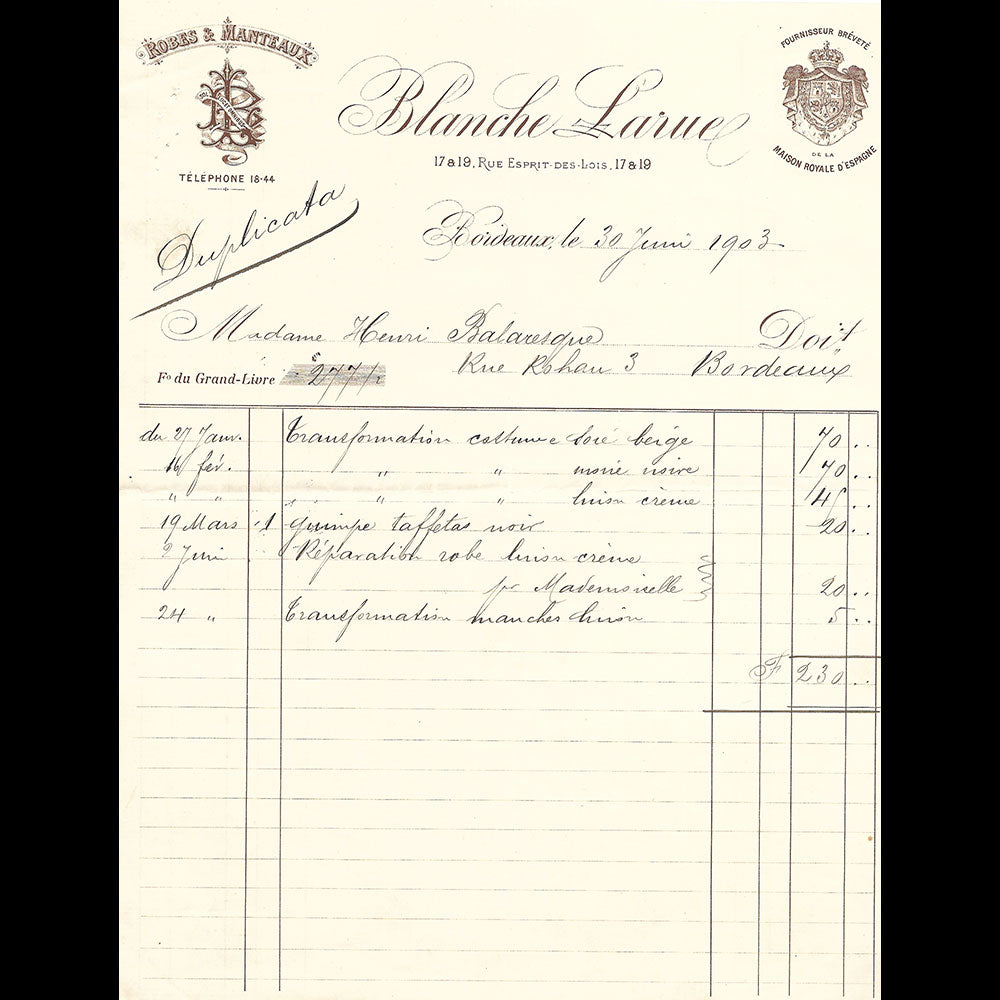 ROBES & MANTEAUX
TÉLÉPHONE 18-44
Blanche Larue
17 & 19, RUE ESPRIT-DES-LOIS, 17 & 19
FOURNISSEUR BRÉVETÉ
DE LA
MAISON ROYALE D'ESPAGNE
Duplicata
Bordeaux, le 30 Juin 1903
Madame Henri Balaresque Doit
Rue Rohan 3 Bordeaux
Fo du Grand-Livre 277
du 27 Janv. Transformation costume soie beige 70 ..
16 fév. " " moire noire 70 ..
" " " " linon crème 45 ..
19 Mars 1 guimpe taffetas noir 20 ..
9 Juin Réparation robe linon crème
pr Mademoiselle 20 ..
24 " Transformation manches linon 5 ..
F 230 ..